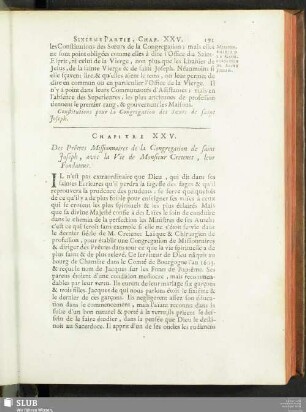 SIXIEME PARTIE, CHAP. XXV. 191
les Constitutions des Sœurs de la Congregation; mais elles
ne sont point obligées comme elles à dire l'Office du Saint
Esprit, ni celui de la Vierge, non plus que les Litanies de
Jesus, de la sainte Vierge & de saint Joseph. Néanmoins si
elles sçavent lire & qu'elles aïent le tems, on leur permet de
dire en commun ou en particulier l'Office de la Vierge. Il
n'y a point dans leurs Communautés d'Assistantes; mais en
l'absence des Superieures, les plus anciennes de profession
tiennent le premier rang, & gouvernent les Maisons.
Constitutions pour la Congregation des sœurs de saint
Joseph.
CHAPITRE XXV.
Des Prêtres Missionnaires de la Congregation de saint
Joseph, avec la Vie de Monsieur Cretenet, leur
Fondateur.
IL n'est pas extraordinaire que Dieu, qui dit dans ses
saintes Ecritures qu'il perdra la sagesse des sages & qu'il
reprouvera la prudence des prudens, se serve quelquefois
de ce qu'il y a de plus foible pour enseigner ses voies à ceux
qui se croient les plus spirituels & les plus éclairés. Mais
que sa divine Majesté confie à des Laïcs le soin de conduire
dans le chemin de la perfection les Ministres de ses Autels;
c'est ce qui seroit sans exemple si elle ne s'étoit servie dans
le dernier siécle de M. Cretenet Laïque & Chirurgien de
profession, pour établir une Congregation de Missionnaires
& diriger des Prêtres dans tout ce que la vie spirituelle a de
plus saint & de plus relevé. Ce serviteur de Dieu naquit au
bourg de Chamlite dans le Comté de Bourgogne l'an 1603.
& reçut le nom de Jacques sur les Fonts de Baptême. Ses
parens étoient d'une condition mediocre, mais recommandables
par leur vertu. Ils eurent de leur mariage six garçons
& trois filles. Jacques de qui nous parlons étoit le sixiéme &
le dernier de ces garçons. Ils negligerent assez son éducation
dans le commencement, mais l'aïant reconnu dans la
suite d'un bon naturel & porté à la vertu, ils prirent le dessein
de le faire étudier, dans la pensée que Dieu le destinoit
au Sacerdoce. Il apprit d'un de ses oncles les rudimens
SLUB
Wir führen Wissen.